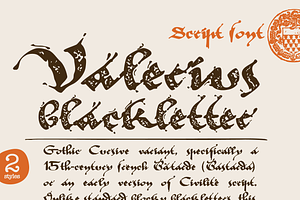 Script font
Valerius
blackletter
2
styles
Gothic Cursive variant, specifically a
15th-century french Bâtarde (Bastarda)
or an early version of Civilité script.
Unlike standard blocky blackletters, this